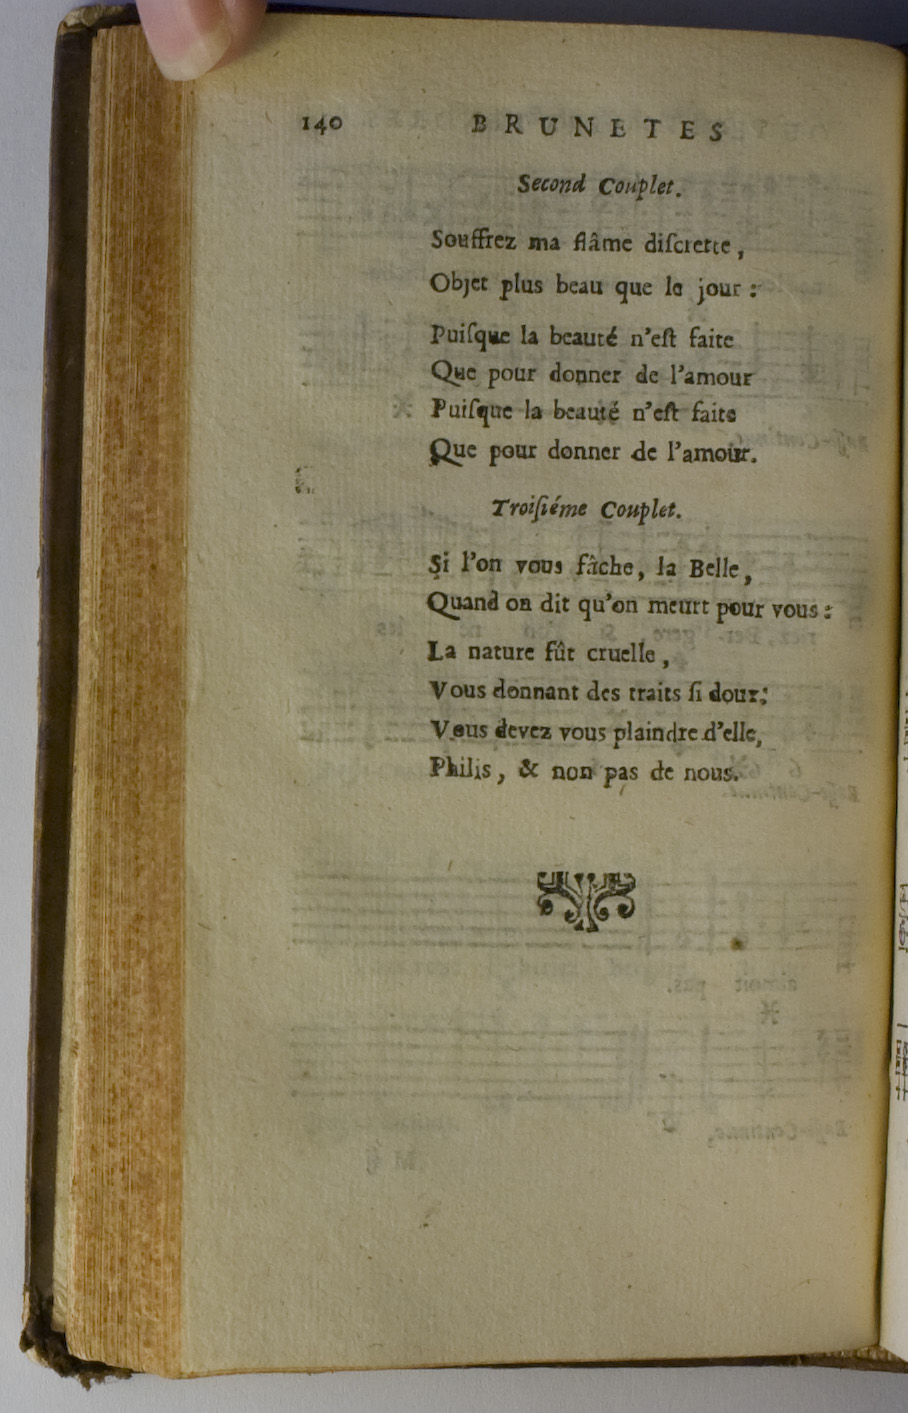 140 BRUNETES
Second Couplet.
Souffrez ma flâme diſcrette,
Objet plus beau que le jour :
Puiſque la beauté n'eſt faite
Que pour donner de l'amour
Puiſque la beauté n'eſt faite
Que pour donner de l'amour.
Troiſiéme Couplet.
Si l'on vous fâche, la Belle,
Quand on dit qu'on meurt pour vous :
La nature fût cruelle,
Vous donnant des traits ſi doux;
Vous devez vous plaindre d'elle,
Philis, & non pas de nous.